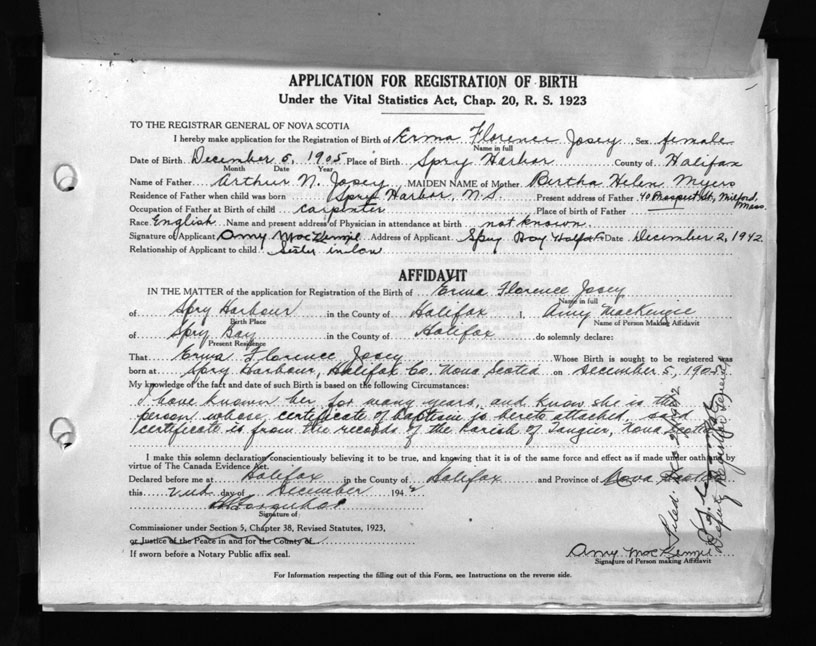 APPLICATION FOR REGISTRATION OF BIRTH
Under the Vital Statistics Act, Chap. 20, R. S. 1923
TO THE REGISTRAR GENERAL OF NOVA SCOTIA
I hereby make application for the Registration of Birth of Erma Florence Josey Sex female
Name in full
Date of Birth December 5, 1905 Place of Birth Spry Harbor County of Halifax
Month Date Year
Name of Father Arthur N. Josey MAIDEN NAME of Mother Bertha Helen Myers
Residence of Father when child was born Spry Harbor, N.S. Present address of Father 40 Prospect St, Milford, Mass.
Occupation of Father at Birth of child carpenter Place of birth of Father
Race English Name and present address of Physician in attendance at birth not known
Signature of Applicant Amy MacKenzie Address of Applicant Spry Bay Halifax Date December 2, 1942
Relationship of Applicant to child Sister in law
AFFIDAVIT
IN THE MATTER of the application for Registration of the Birth of Erma Florence Josey
Name in full
of Spry Harbour in the County of Halifax I, Amy MacKenzie
Birth Place Name of Person Making Affidavit
of Spry Bay in the County of Halifax do solemnly declare:
Present Residence
That Erma Florence Josey Whose Birth is sought to be registered was
born at Spry Harbour, Halifax Co. Nova Scotia on December 5, 1905
My knowledge of the fact and date of such Birth is based on the following Circumstances:
I have known her for many years, and know she is the
person whose certificate of Baptism is hereto attached, said
certificate is from the records of the Parish of Tangier, Nova Scotia
I make this solemn declaration conscientiously believing it to be true, and knowing that it is of the same force and effect as if made under oath and by
virtue of The Canada Evidence Act.
Declared before me at Halifax in the County of Halifax and Province of Nova Scotia
this 2nd day of December 1942
Signature of
Commissioner under Section 5, Chapter 38, Revised Statutes, 1923,
or Justice of the Peace in and for the County of
If sworn before a Notary Public affix seal.
Amy MacKenzie
Signature of Person making Affidavit
For Information respecting the filling out of this Form, see Instructions on the reverse side.
Filed
Deputy Registrar General